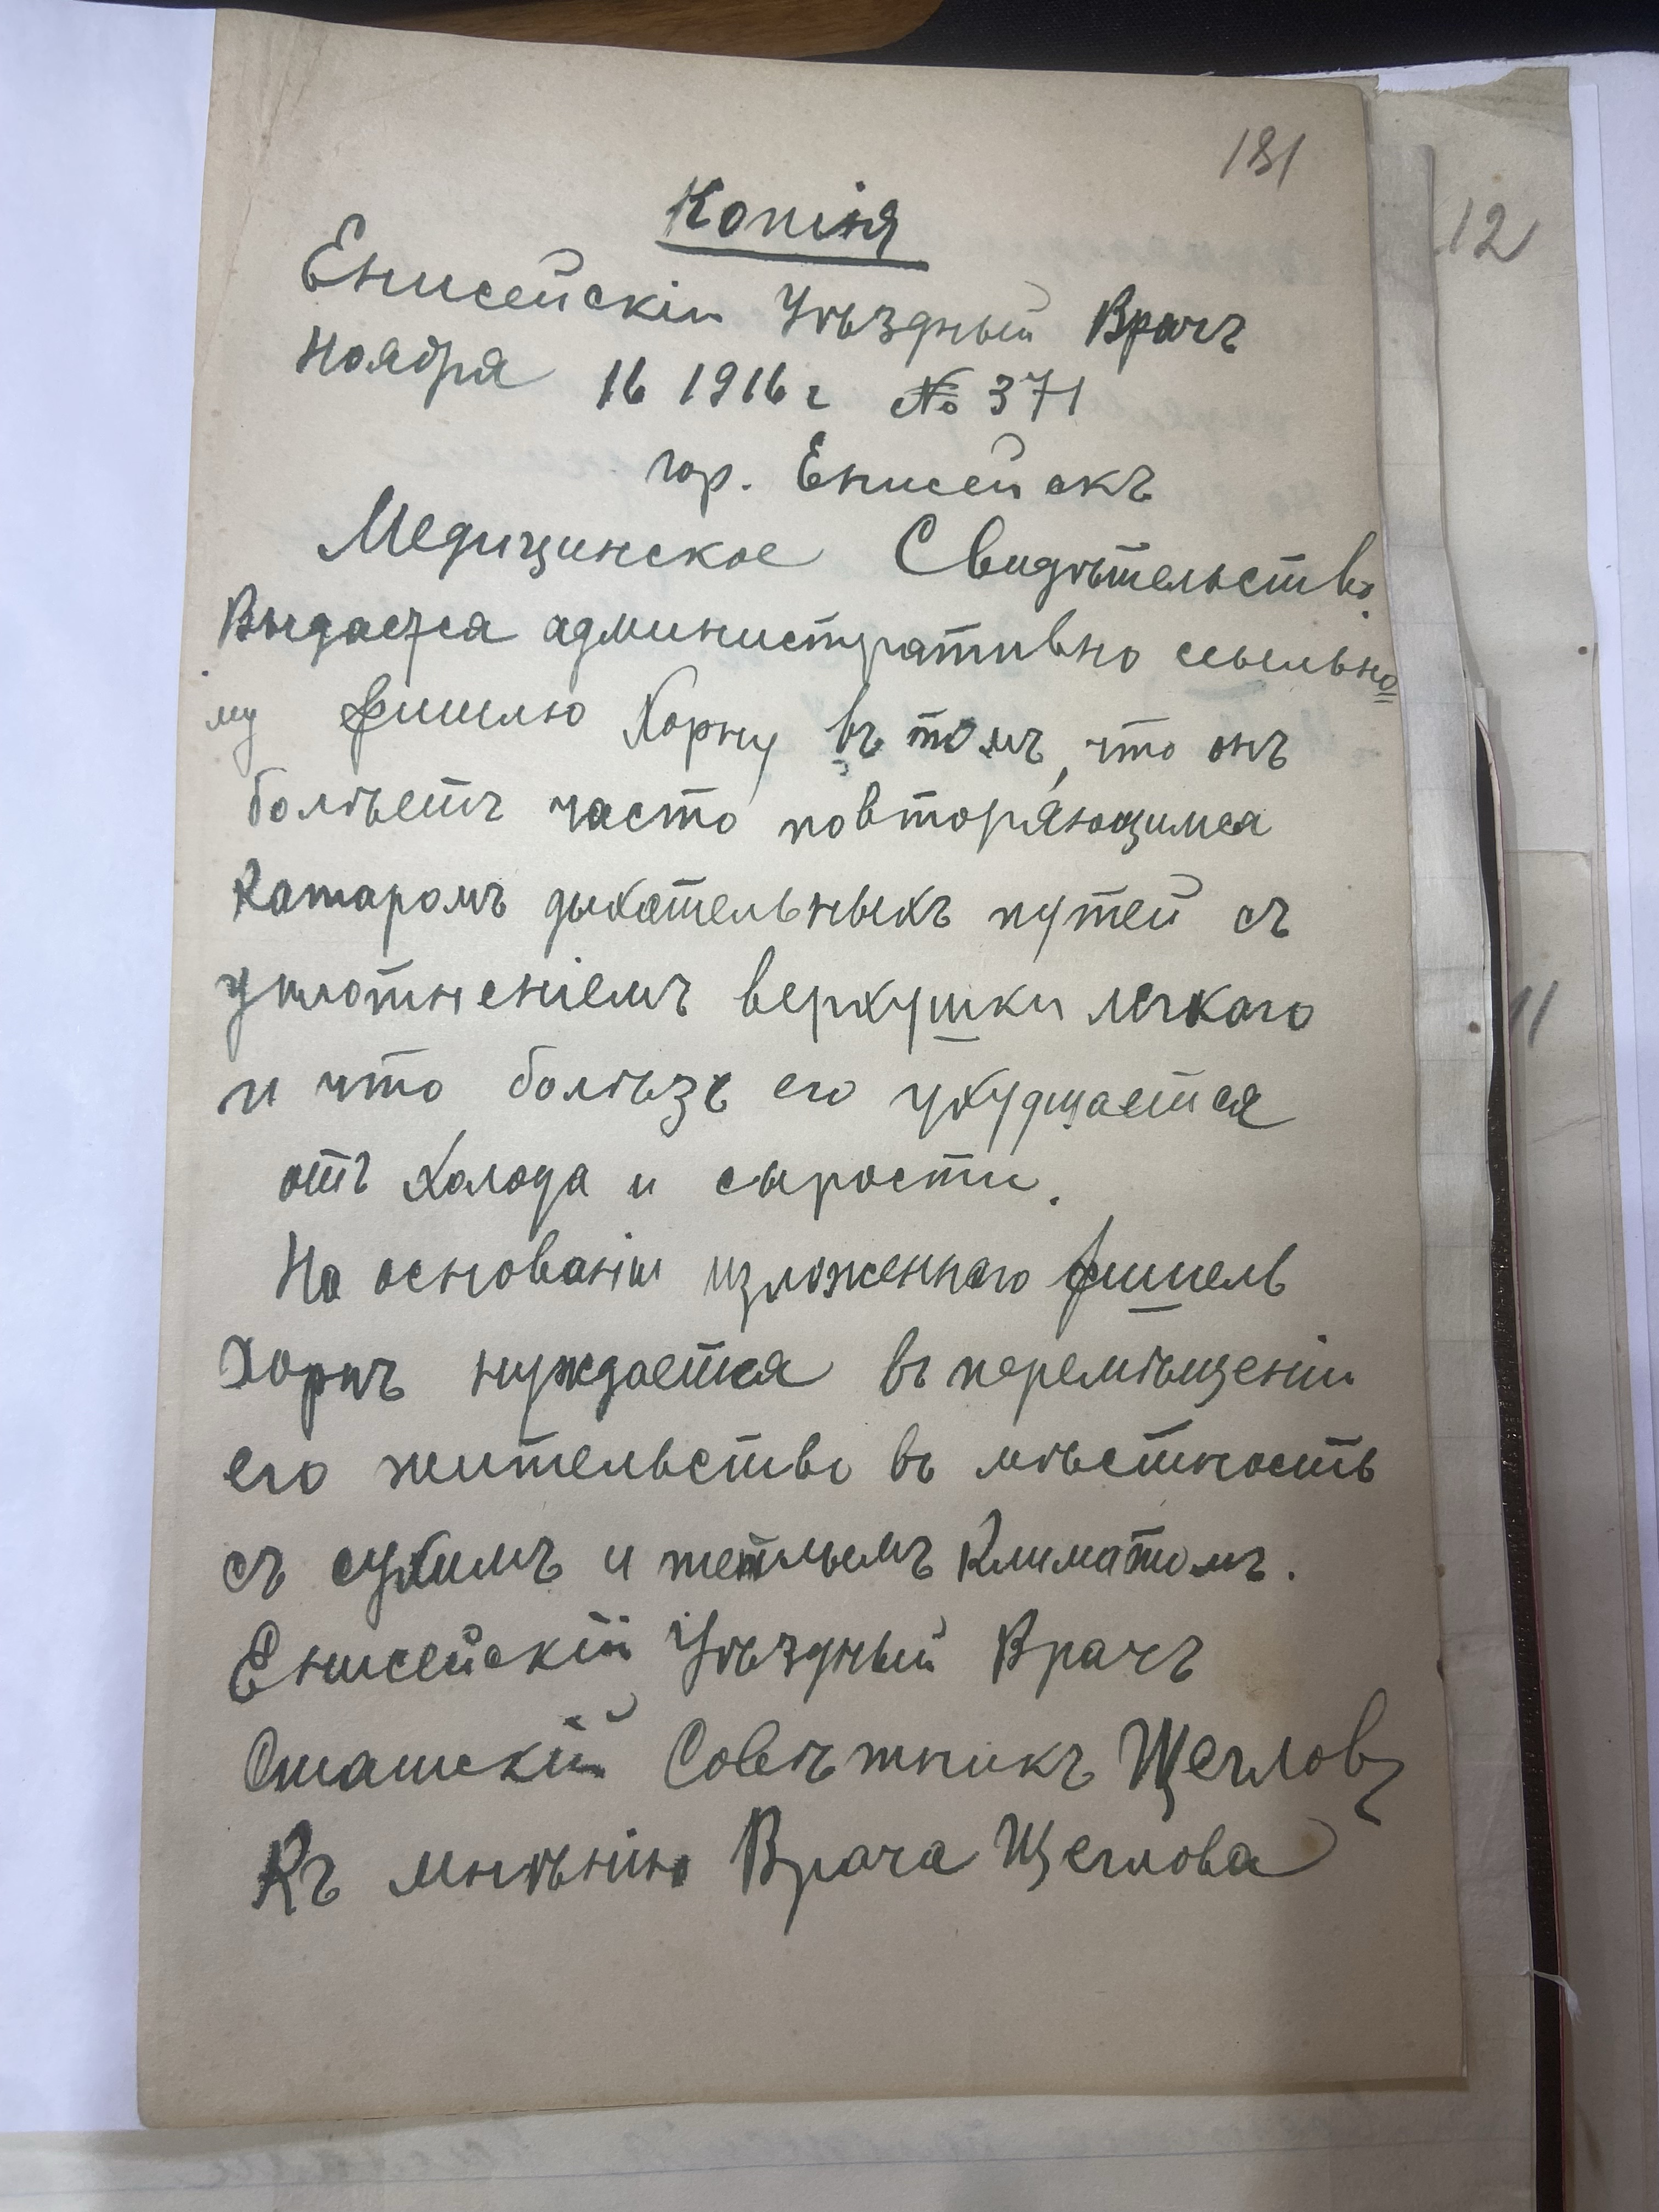 181
Копія
Енисейскій Уѣздный Врачъ
Ноября 16 1916 г № 371
гор. Енисейскъ
Медицинское Свидѣтельство.
Выдается административно ссыльно=
му Фишлю Хорну въ томъ, что онъ
болѣетъ часто повторяющимся
катаромъ дыхательныхъ путей съ
уплотненіемъ верхушки легкаго
и что болѣзь его ухудшается
отъ холода и сырости.
На основаніи изложеннаго Фишель
Хорнъ нуждается въ перемѣщеніи
его жительство въ мѣстность
съ сухимъ и тетлымъ климатомъ.
Енисейскій Уѣздный Врачъ
Статскій Совѣтникъ Щегловъ
Къ мнѣнію Врача Щеглова
12
11